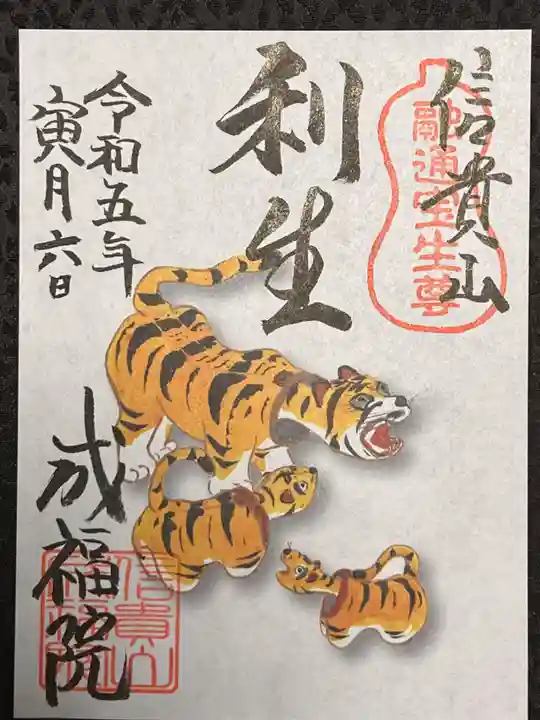 信貴山
融通宝生尊
利生
令和五年
寅月六日
成福院
信貴山